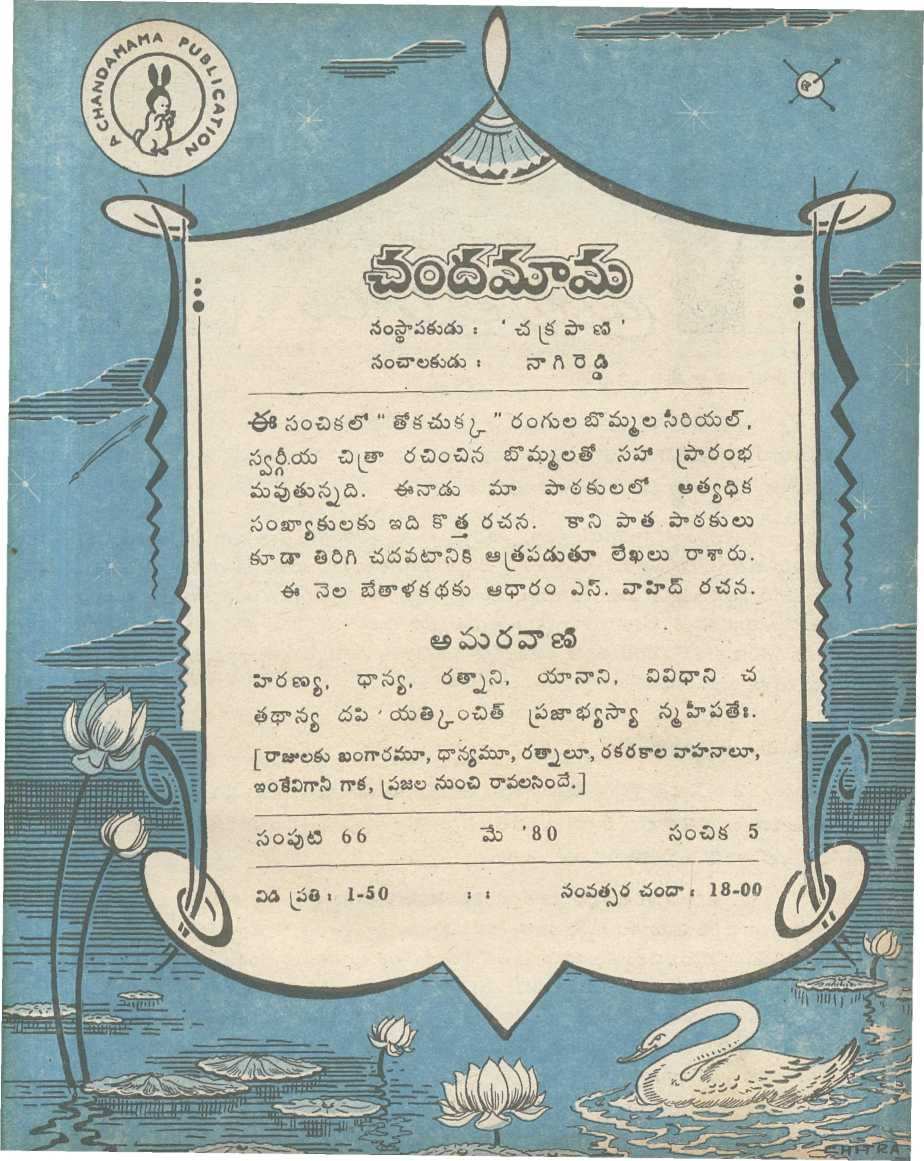 A CHANDAMAMA PUBLICATION
చందమామ
సంస్థాపకుడు : ' చక్రపాణి '
సంచాలకుడు : నాగిరెడ్డి
ఈ సంచికలో " తోకచుక్క " రంగుల బొమ్మల సీరియల్,
స్వర్గీయ చిత్రా రచించిన బొమ్మలతో సహా ప్రారంభ
మవుతున్నది. ఈనాడు మా పాఠకులలో అత్యధిక
సంఖ్యాకులకు ఇది కొత్త రచన. కాని పాత పాఠకులు
కూడా తిరిగి చదవటానికి ఆత్రపడుతూ లేఖలు రాశారు.
ఈ నెల బేతాళకథకు ఆధారం ఎస్. వాహిద్ రచన.
అమరవాణి
హిరణ్య, ధాన్య, రత్నాని, యానాని, వివిధాని చ
తథాన్య దపి యత్కించిత్ ప్రజాభ్యస్యా న్మహీపతేః.
[రాజులకు బంగారమూ, ధాన్యమూ, రత్నాలూ, రకరకాల వాహనాలూ,
ఇంకేవిగానీ గాక, ప్రజల నుంచి రావలసిందే.]
సంపుటి 66 మే '80 సంచిక 5
విడి ప్రతి : 1-50 : : సంవత్సర చందా : 18-00
CHITRA